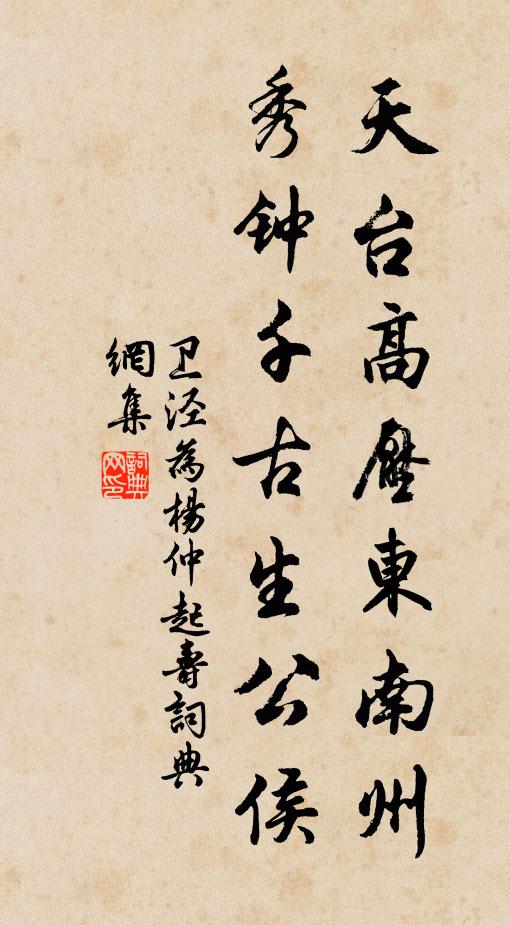 天台高壓東南州
秀钟千古生公侯
卫泾為楊仲起壽詞典
網集
詞典
网印